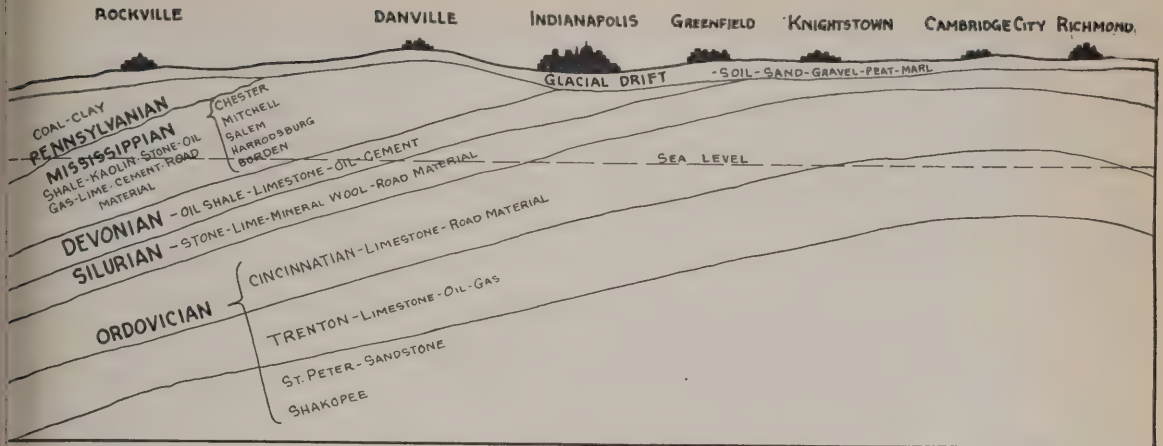 ROCKVILLE DANVILLE INDIANAPOLIS GREENFIELD KNIGHTSTOWN CAMBRIDGE CITY RICHMOND.
GLACIAL DRIFT -SOIL-SAND-GRAVEL-PEAT-MARL
COAL-CLAY
PENNSYLVANIAN
MISSISSIPPIAN
SHALE-KAOLIN-STONE-OIL
GAS-LIME-CEMENT-ROAD
MATERIAL
CHESTER
MITCHELL
SALEM
HARRODSBURG
BORDEN
SEA LEVEL
DEVONIAN -OIL SHALE-LIMESTONE-OIL-CEMENT
SILURIAN -STONE-LIME-MINERAL WOOL-ROAD MATERIAL
ORDOVICIAN
CINCINNATIAN-LIMESTONE-ROAD MATERIAL
TRENTON-LIMESTONE-OIL-GAS
ST. PETER-SANDSTONE
SHAKOPEE